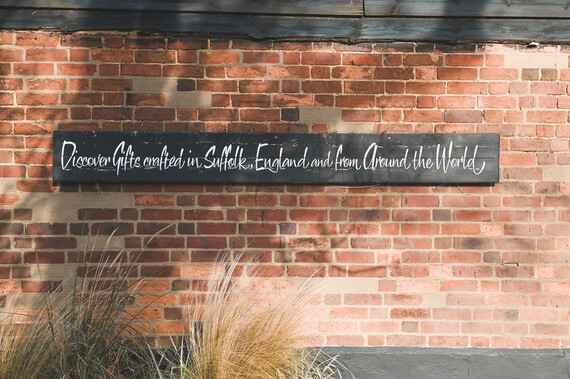 Discover Gifts crafted in Suffolk, England and from Around the World